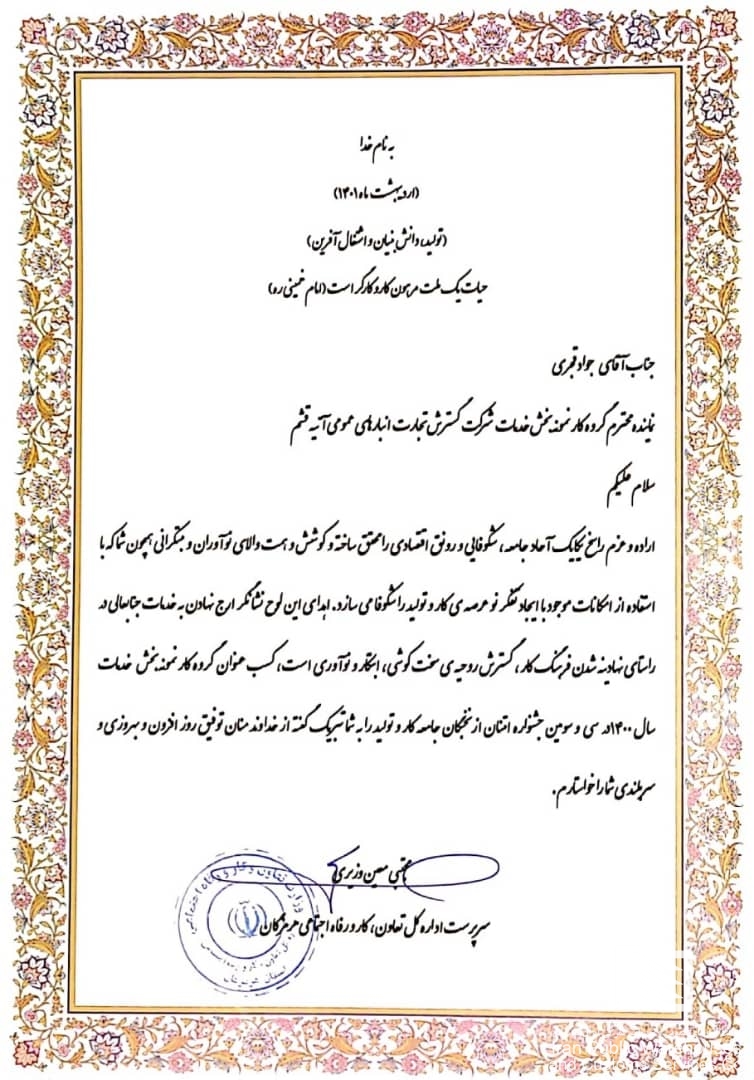 به نام خدا
(اردیبهشت ماه ۱۴۰۱)
(تولید، دانش بنیان و اشتغال آفرین)
حیات یک ملت مرهون کار و کارگر است (امام خمینی ره)
جناب آقای جواد قجری
نماینده محترم گروه کار نمونه بخش خدمات شرکت گسترش تجارت انبارهای عمومی آتیه قشم
سلام علیکم
اراده و عزم راسخ یکایک آحاد جامعه، شکوفایی و رونق اقتصادی را محقق ساخته و کوشش و همت والای نوآوران و مبتکرانی همچون شما که با
استفاده از امکانات موجود با ایجاد تفکر نو عرصه ی کار و تولید را شکوفا می سازد. اهدای این لوح نشانگر ارج نهادن به خدمات جنابعالی در
راستای نهادینه شدن فرهنگ کار، گسترش روحیه ی سخت کوشی، ابتکار و نوآوری است، کسب عنوان گروه کار نمونه بخش خدمات
سال ۱۴۰۰ در سی و سومین جشنواره امتنان از نخبگان جامعه کار و تولید را به شما تبریک گفته از خداوند منان توفیق روز افزون و بهروزی و
سربلندی شما را خواستارم.
مجتبی معین وزیری
سرپرست اداره کل تعاون، کار و رفاه اجتماعی هرمزگان
وزارت تعاون و کار و رفاه اجتماعی